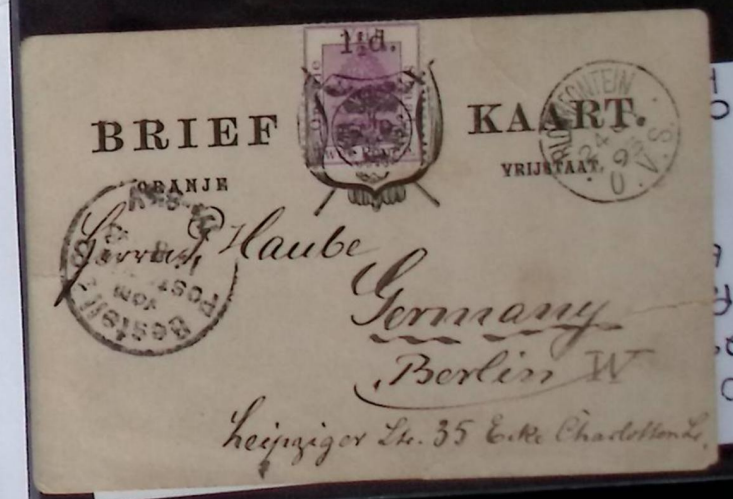 1½d.
BRIEF KAART.
ORANJE VRIJSTAAT.
BLOEMFONTEIN
24
O.V.S.
Bestellt
vom
POST
Haube
Germany
Berlin W
Leipziger Str. 35 Ecke Charlotten Str.